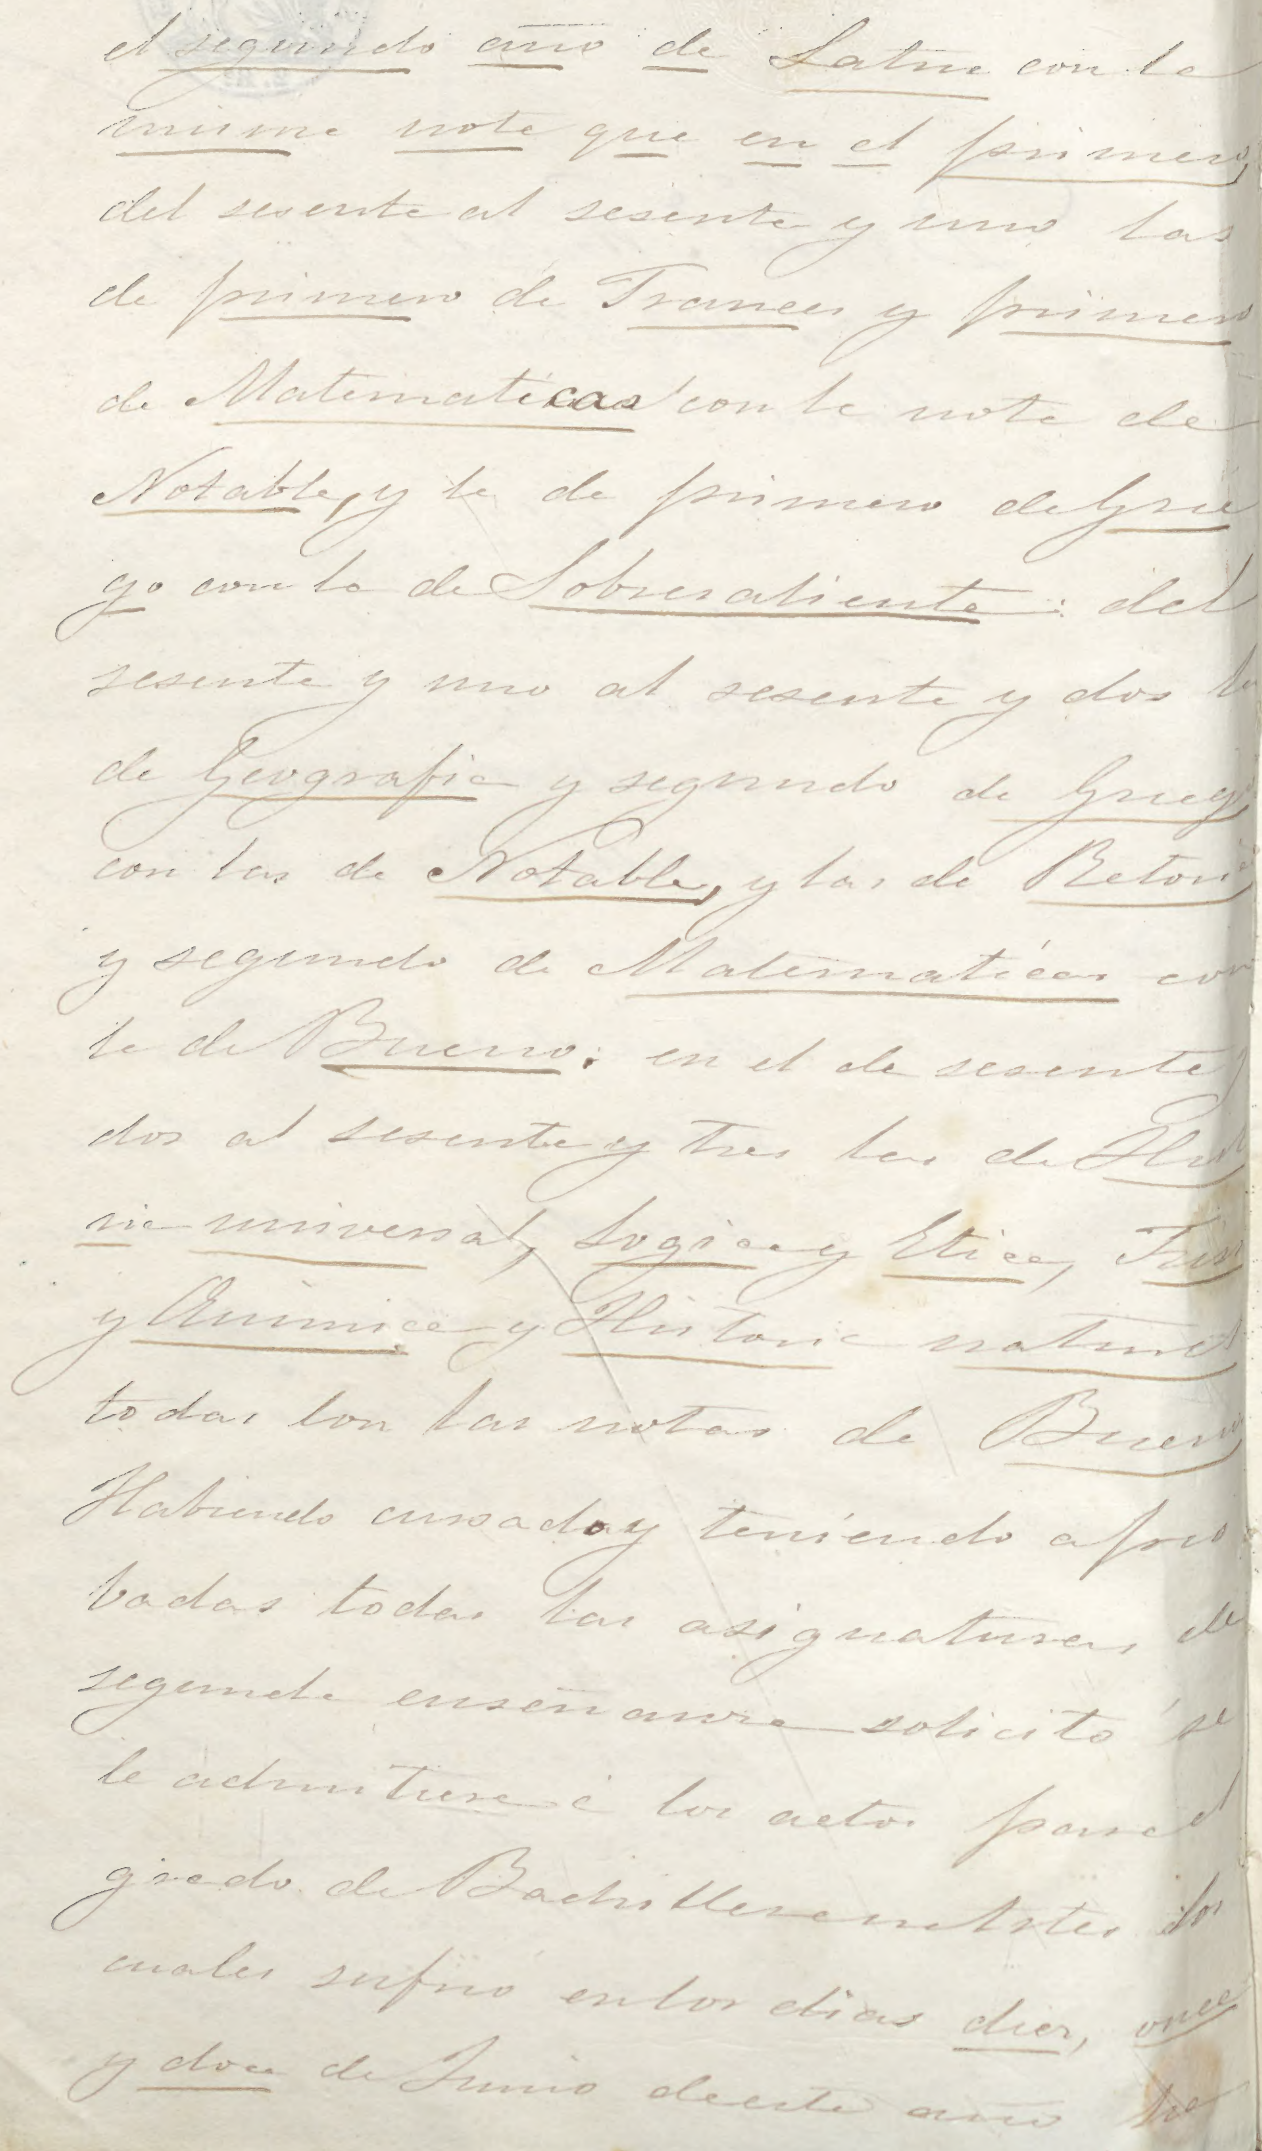 el segundo año de Latin con la
misma nota que en el primero,
del sesenta al sesenta y uno las
de primero de Frances y primero
de Matematicas con la nota de
Notable, y la de primero de Grie
go con la de Sobresaliente: del
sesenta y uno al sesenta y dos la
de Geografia y segundo de Griego
con las de Notable, y las de Retorica
y segundo de Matematicas con
la de Bueno: en el de sesenta
dos al sesenta y tres las de Histo
ria universal, Logica y Etica, Fisi
y Quimica y Historia natural
todas con las notas de Bueno
Habiendo cursado y teniendo apro
badas todas las asignaturas de
segunda enseñanza solicitó se
le admitiese á los actos para el
grado de Bachiller en Artes los
cuales sufrió en los dias diez, once
y doce de Junio de este año